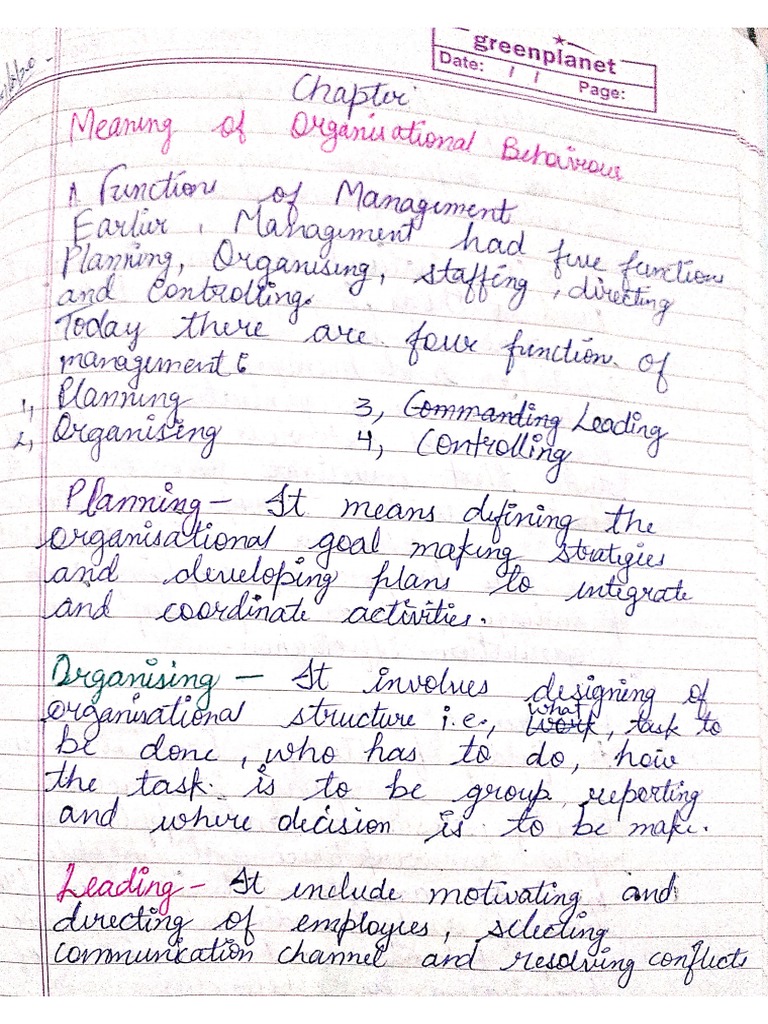 greenplanet
Date: / / Page:
Chapter
Meaning of Organisational Behaviour
Function of Management
Earlier, Management had five function
Planning, Organising, staffing, directing
and controlling.
Today there are four function of
management
1, Planning 3, Commanding Leading
2, Organising 4, Controlling
Planning – It means defining the
organisational goal making stratgies
and developing plans to integrate
and coordinate activities.
Organising – It involves designing of
organisational structure i.e., work what, task to
be done, who has to do, how
the task is to be group reporting
and where decision is to be make.
Leading – It include motivating and
directing of employees, selecting
communication channel and resolving conflicts